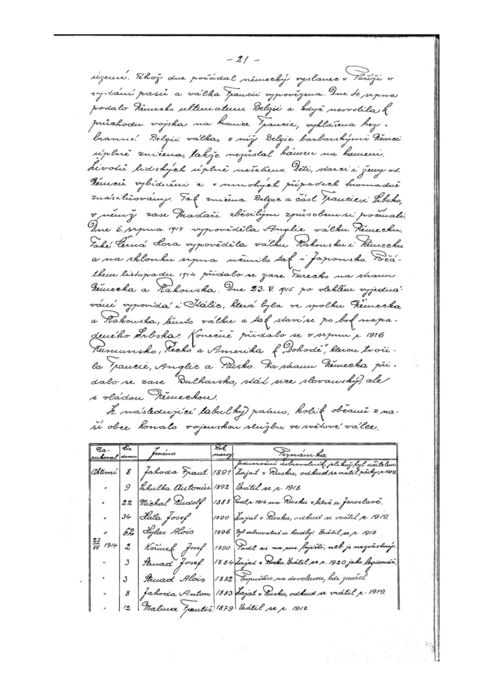 - 21 -
území. Téhož dne požádal německý vyslanec v Paříži o
vydání pasů a válka Francii vypovězena. Dne 2. srpna
podalo Německo ultimatum Belgii a když nevolila k
průchodu vojska na hranice Francie, vyhlášena bez-
branné Belgii válka, v níž Belgie barbarskými Němci
úplně zničena, takže nezůstal kámen na kameni.
Životů lidských úplně nešetřeno. Děti, starci i ženy od
Němců vybíjeni a v mnohých případech hromadně
znásilňovány. Tak zničena Belgie a část Francie i Srbsko,
v němž zase Maďaři zběsilým způsobem si počínali.
Dne 5. srpna 1914 vypověděla Anglie válku Německu.
Také Černá Hora vypověděla válku Rakousku i Německu
a na sklonku srpna učinilo tak i Japonsko. Počá-
tkem listopadu 1914 přidalo se zase Turecko na stranu
Německa a Rakouska. Dne 23. V. 1915 po delším vyjedná-
vání vypovídá i Itálie, která byla ve spolku Německa
a Rakouska, těmto válku a tak staví se po bok napa-
deného Srbska. Konečně přidalo se v srpnu r. 1916
Rumunsko, Řecko a Amerika k "Dohodě", kterou tvoři-
la Francie, Anglie a Rusko. Na stranu Německa při-
dalo se zase Bulharsko, stát sice slovanský, ale
s vládou Německou.
Z následující tabulky patrno, kolik občanů z na-
ší obce konalo vojenskou službu ve světové válce.
Na-
rukoval Čís. domu Jméno Rok naroz. Poznámka
Aktivní 8 Jahoda Frant. 1891 jednoroční dobrovolník, jelikož byl učitelem. Zajat v Rusku, odkud se vrátil
" 9 Cibulka Antonín 1892 Vrátil se r. 1918
" 22 Michal Rudolf 1888 Padl r. 1914 na Rusku v bitvě u Jaroslavě.
" 34 Hála Josef 1890 Zajat v Rusku, odkud se vrátil r. 1919.
" 62 Alois 1896 Vrátil se r. 1918
27/VII 1914 2 Kořínek Josef 1890 Padl as na rus. bojišti, neb je nezvěstný.
" 3 Hrnad Josef 1884 Zajat v Rusku. Vrátil se r. 1920 jako legionář.
" 3 Hrnad Alois 1882 na dovolenou, kde zemřel
" 8 Jahoda Anton. 1883 Zajat v Rusku, odkud se vrátil r. 1919.
" 12 Malina Frant. 1879 Vrátil se r. 1918.